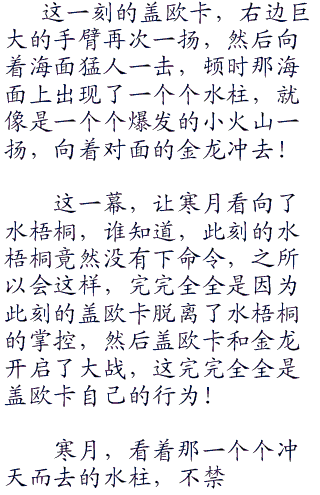 这一刻的盖欧卡，右边巨
大的手臂再次一扬，然后向
着海面猛人一击，顿时那海
面上出现了一个个水柱，就
像是一个个爆发的小火山一
扬，向着对面的金龙冲去！
这一幕，让寒月看向了
水梧桐，谁知道，此刻的水
梧桐竟然没有下命令，之所
以会这样，完完全全是因为
此刻的盖欧卡脱离了水梧桐
的掌控，然后盖欧卡和金龙
开启了大战，这完完全全是
盖欧卡自己的行为！
寒月，看着那一个个冲
天而去的水柱，不禁